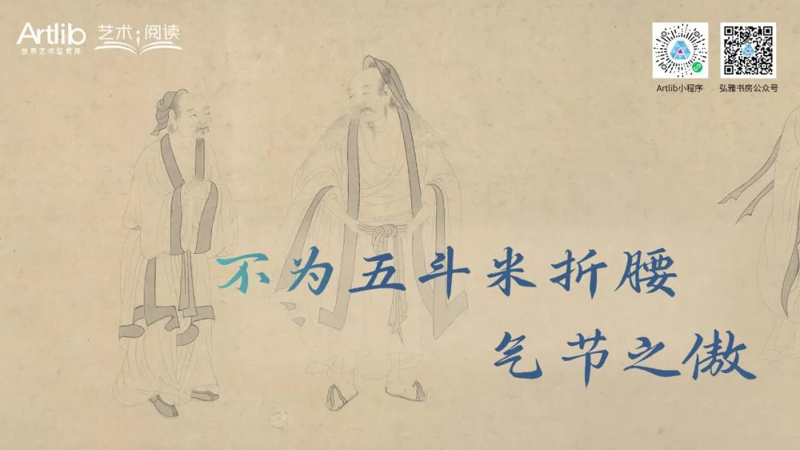 Artlib
世界艺术鉴赏库
艺术;阅读
Artlib小程序
弘雅书房公众号
不为五斗米折腰
气节之傲